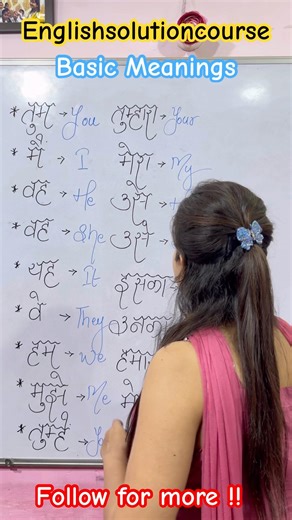 Englishsolutioncourse
Basic Meanings
* तुम → You तुम्हारा → Your
* मैं → I मेरा → My
* वह → He उसे →
* वह → She उसे
* यह → It
* वे → They
* हम → We
* मुझे → Me
* तुम्हें →
Follow for more !!